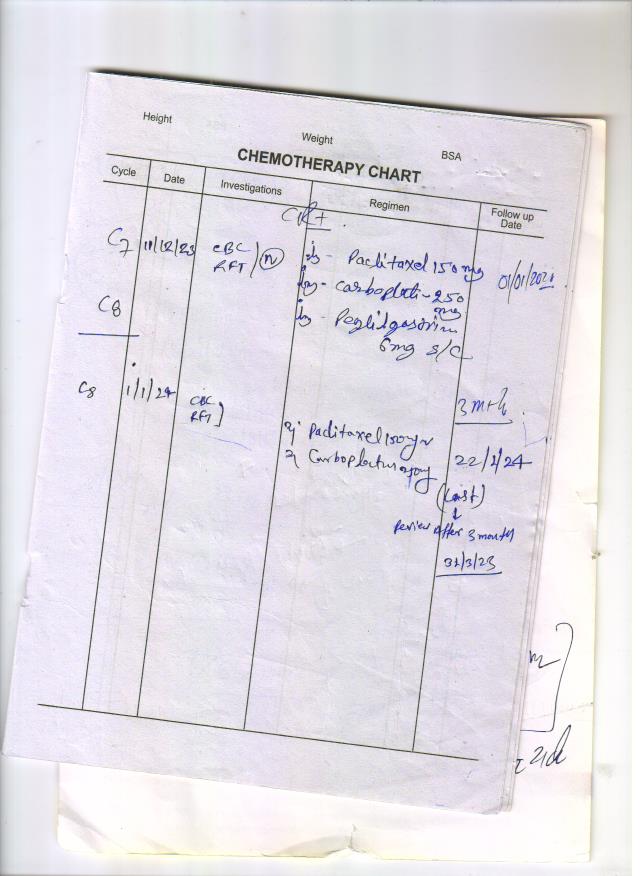 Height Weight BSA
CHEMOTHERAPY CHART
Cycle Date Investigations Regimen Follow up Date
C7 11/12/23 CBC
RFT (N)
inj - Paclitaxel 150 mg
inj - Carboplati - 250 mg
inj - Pegfilgastrim
6mg S/C
01/01/2024
C8
C8 1/1/24 CBC
RFT
Paclitaxel 150mg
3 mth
22/1/24
(Last)
review After 3 month
31/3/23